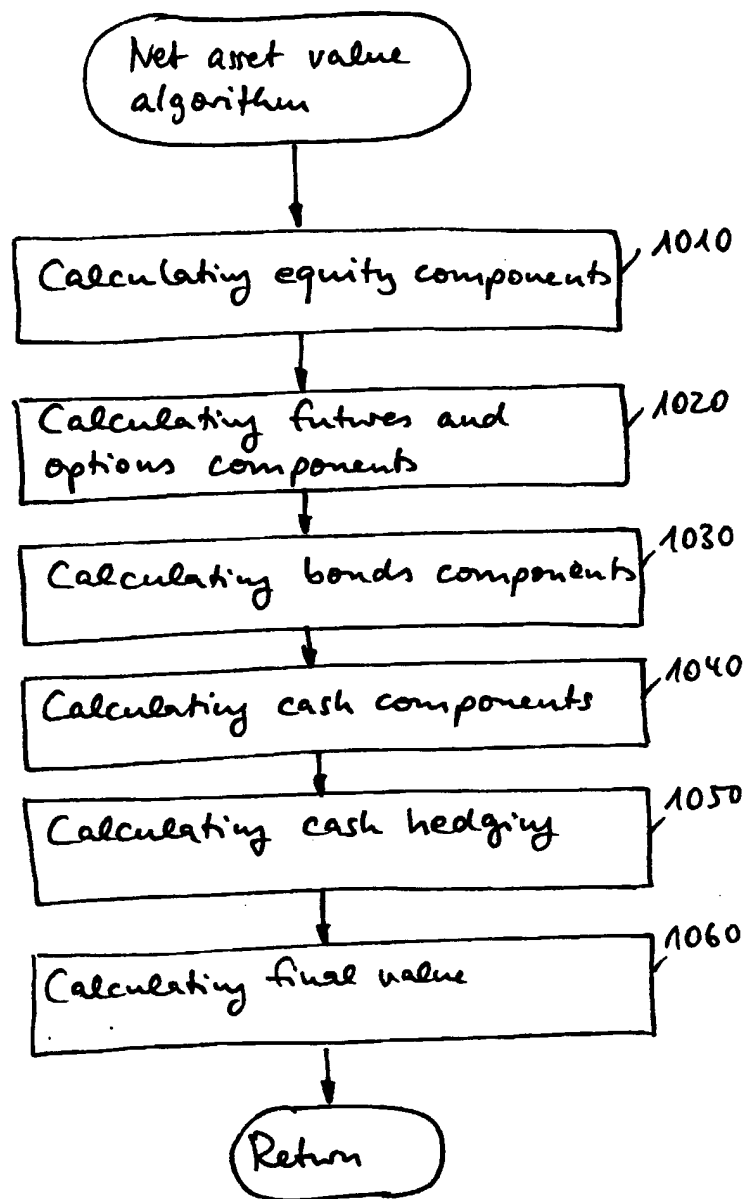 Net asset value
algorithm
1010
Calculating equity components
1020
Calculating futures and
options components
1030
Calculating bonds components
1040
Calculating cash components
1050
Calculating cash hedging
1060
Calculating final value
Return